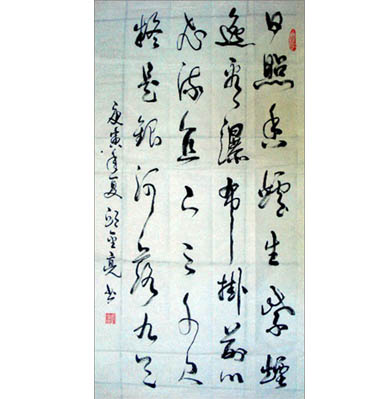 日照香爐生紫煙
遙看瀑布掛前川
飛流直下三千尺
疑是銀河落九天
庚寅年夏金亮书